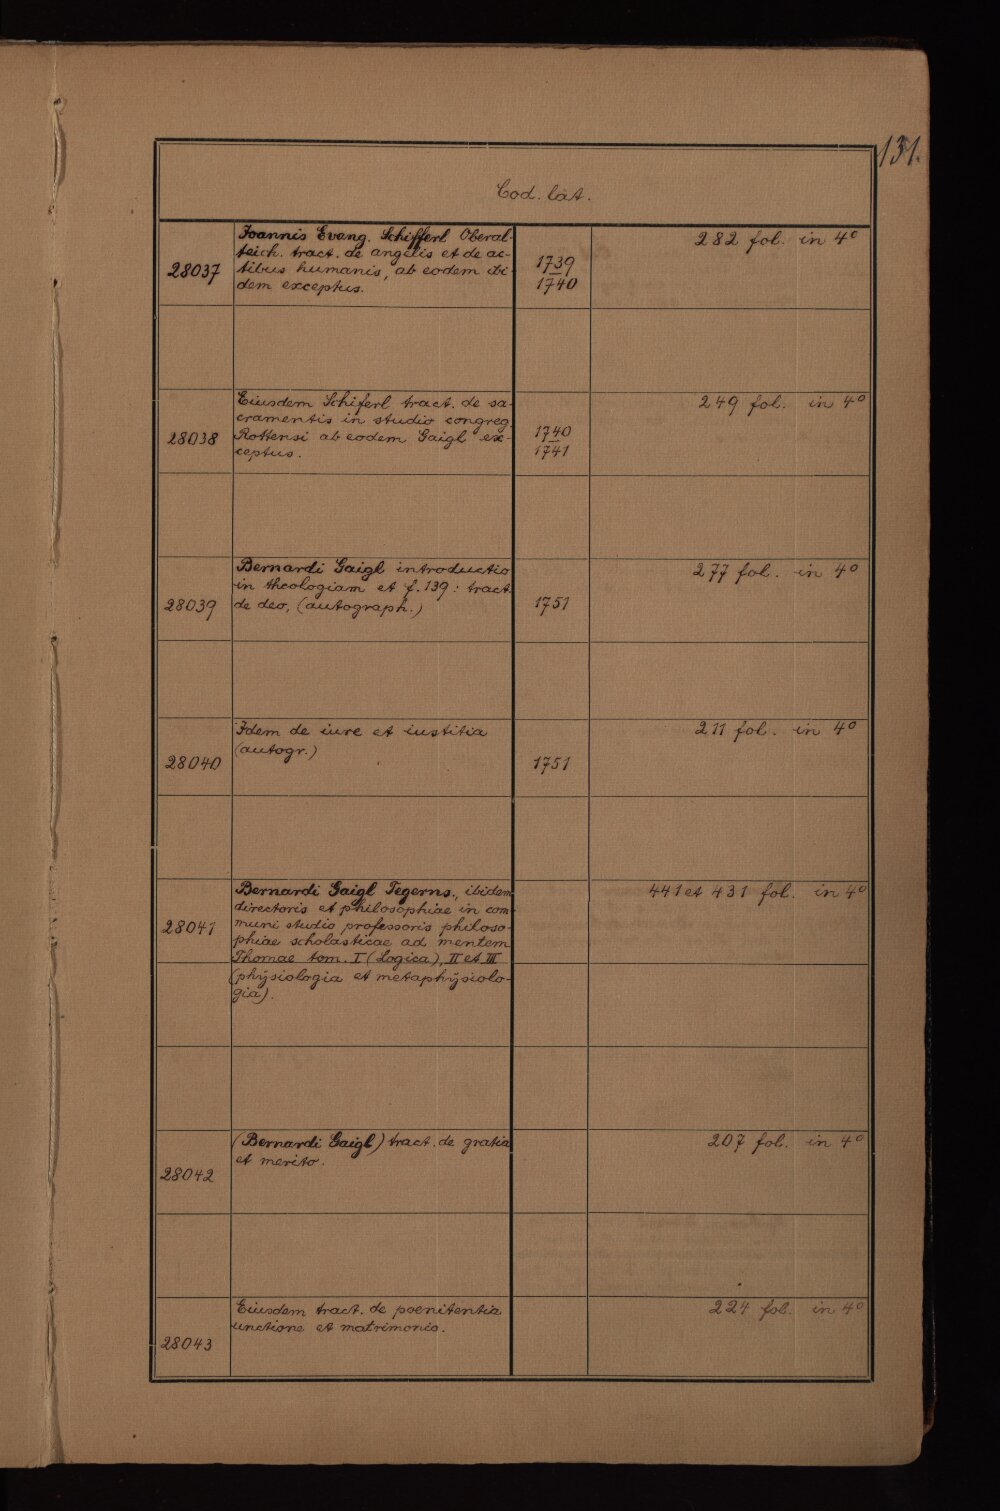 131.
Cod. lat.
28037
Joannis Evang. Schifferl Oberal-
teich. tract. de angelis et de ac-
tibus humanis, ab eodem ibi-
dem exceptus.
1739
1740
282 fol. in 4°
28038
Eiusdem Schiferl tract. de sa-
cramentis in studio congreg.
Rottensi ab eodem Gaigl ex-
ceptus.
1740
1741
249 fol. in 4°
28039
Bernardi Gaigl introductio
in theologiam et f. 139: tract.
de deo, (autograph.)
1751
277 fol. in 4°
28040
Idem de iure et iustitia
(autogr.)
1751
211 fol. in 4°
28041
Bernardi Gaigl Tegerns., ibidem
directoris et philosophiae in com-
muni studio professoris philoso-
phiae scholasticae ad mentem
Thomae tom. I (Logica), II et III
(physiologia et metaphysiolo-
gia).
441 et 431 fol. in 4°
28042
(Bernardi Gaigl) tract. de gratia
et merito.
207 fol. in 4°
28043
Eiusdem tract. de poenitentia
unctione et matrimonio.
224 fol. in 4°